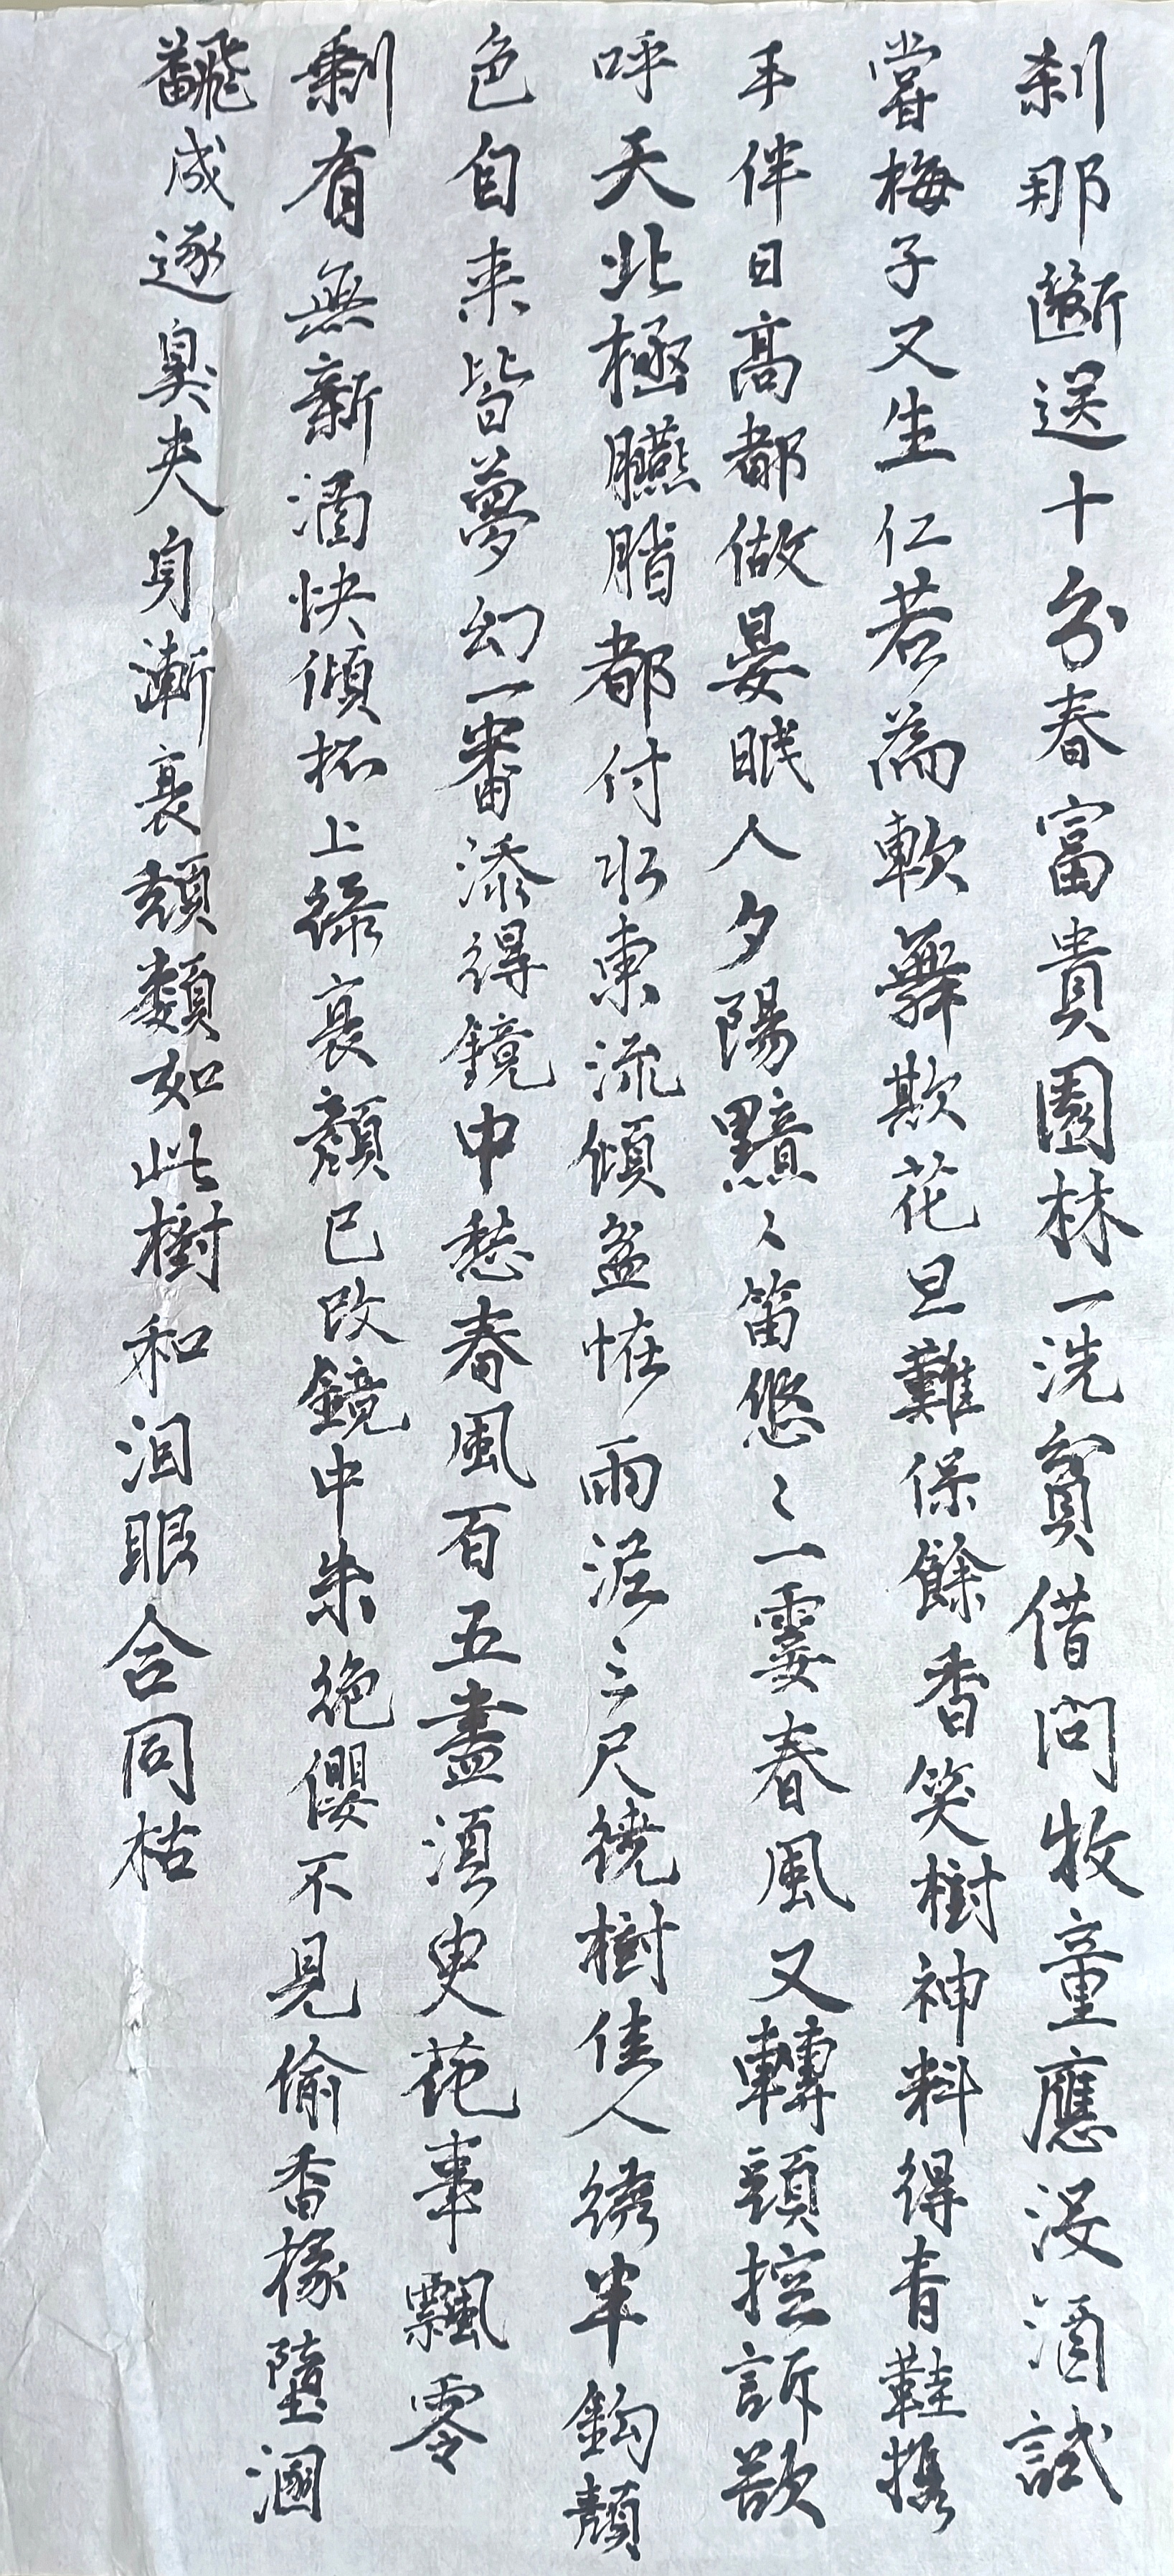 剎那斷送十分春富貴園林一洗貧借問牧童應沒酒試
嘗梅子又生仁若為軟舞欺花旦難保餘香笑樹神料得青鞋攜
手伴日高都做晏眠人夕陽黯〻笛悠〻一霎春風又轉頭控訴欲
呼天北極臙脂都付水東流傾盆怪雨泥三尺繞樹佳人繡半鈎顏
色自来皆夢幻一番添得鏡中愁春風百五盡須臾花事飄零
剩有無新酒快傾杯上綠衰顏已改鏡中朱絕纓不見偷香椽墮溷
飜成逐臭夫身漸衰頹類如此樹和淚眼合同枯